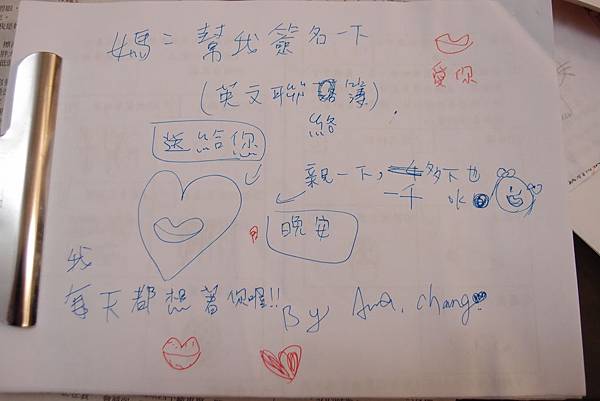 媽ㄇ幫我簽名一下
愛你
(英文聯簿)
絡
送給您
親一下,多下也
一千 水
晚安
我
每天都想著你喔!!
By Ana. Chang